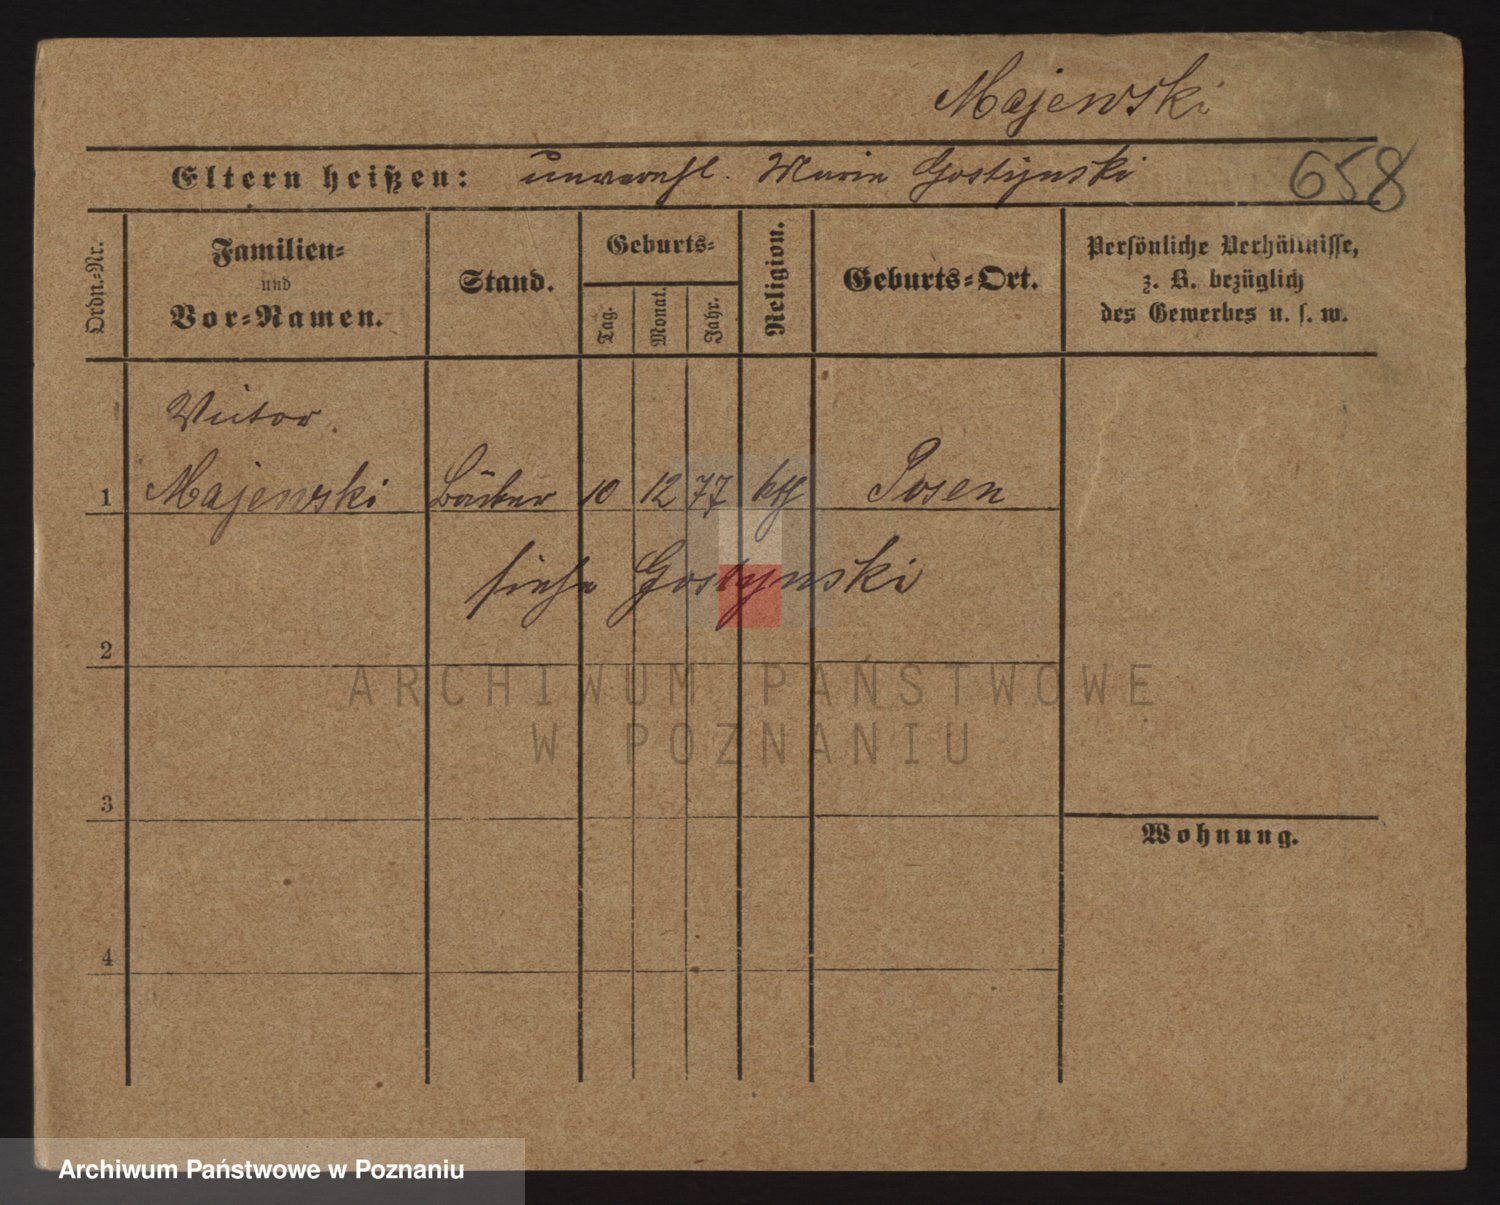 Majewski
Eltern heißen: unverehl. Marie Gostynski
658
Ordn.-Nr.
Familien-
und
Vor-Namen.
Stand.
Geburts-
Tag.
Monat.
Jahr.
Religion.
Geburts-Ort.
Persönliche Verhältnisse,
z. B. bezüglich
des Gewerbes u. s. w.
Victor
1 Majewski Bäcker 10 12 77 kth Posen
siehe Gostynski
2
ARCHIWUM PAŃSTWOWE
W POZNANIU
3
Wohnung.
4
Archiwum Państwowe w Poznaniu